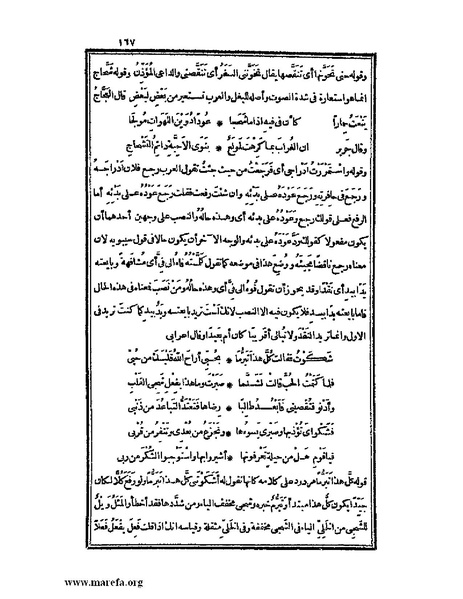 ١٦٧
وقوله حتى تخونها أى تنقصها يقال تخوننى السفر أى تنقصنى والداعى المؤذن وقوله شحاج
انما هو استعارة فى شدة الصوت وأصله للبغل والعرب تستعير من بعض لبعض قال العجاج
كأن فى فيه اذا ما شحجا * عودا دوين اللهوات مولجا
وقال جرير ان الغراب بما كرهت لمولع * بنوى الأحبة دائم التشحاج
وقوله واستمررت ادراجى أى فرجعت من حيث جئت تقول العرب رجع فلان ادراجه
ورجع فى حافرته ورجع عوده على بدئه وان شئت رفعت فقلت رجع عوده على بدئه أما
الرفع فعلى قولك رجع وعوده على بدئه أى وهذه حاله والنصب على وجهين أحدهما أن
يكون مفعولا كقولك رد عوده على بدئه والوجه الآخر أن يكون حالا فى قول سيبويه لان
معناه رجع ناقضا مجيئه ووضع هذا فى موضعه كما تقول كلمته فاه الى فى أى مشافهة وبايعته
يدا بيد أى نقدا وقد يجوز أن تقول فوه الى فى أى وهذه حاله ومن نصب فمعناه فى هذه الحال
فاما بايعته يدا بيد فلا يكون فيه الا النصب لانك لست تريد بايعته ويد بيد كما كنت تريد فى
الاول وانما تريد النقد ولا تبالى أقريبا كان أم بعيدا وقال اعرابى
شكوت فقالت كل هذا تبرما * بحبى أراح الله قلبك من حبى
فلما كتمت الحب قالت لشد ما * صبرت وما هذا بفعل شجى القلب
وأدنو فتقصينى فأبعد طالبا * رضاها فتعتد التباعد من ذنبى
فشكواى تؤذيها وصبرى يسوءها * وتجزع من بعدى وتنفر من قربى
فيا قوم هل من حيلة تعرفونها * أشيروا بها واستوجبوا الشكر من ربى
قوله كل هذا تبرما مردود على كلامه كانها تقول له أشكوتنى كل هذا تبرما ولو رفع كلا لكان
جيدا يكون كل هذا مبتدأ وتبرم خبره وشجى مخفف الياء ومن شددها فقد أخطأ والمثل ويل
للشجى من الخلى الياء فى الشجى مخففة وفى الخلى مثقلة وقياسه انك اذا قلت فعل يفعل فعلا
www.marefa.org